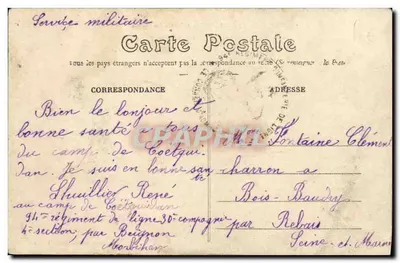 Service militaire
Carte Postale
Tous les pays étrangers n'acceptent pas la correspondance au
CORRESPONDANCE
ADRESSE
Bien le bonjour et
bonne santé a tous
du camp de Coëtqui
dan. Je suis en bonne san
té
Lhuillier René
au camp de Coëtquidan
94e régiment de ligne 30e compagnie
4e section par Beignon
Morbihan
Mr Fontaine Clément
charron a
Bois-Baudry
par Rebais
Seine-et-Marne
CARTHAPHILE